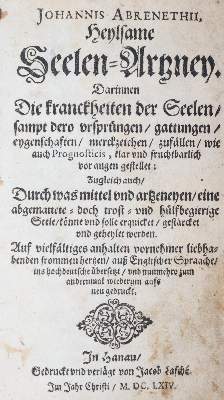 JOHANNIS ABRENETHII,
Heylsame
Seelen-Artzney.
Darinnen
Die kranckheiten der Seelen/
sampt dero ursprüngen/ gattungen/
eygenschafften/ merckzeichen/ zufällen/ wie
auch Prognosticis, klar und fruchtbarlich
vor augen gestellet:
Zugleich auch/
Durch was mittel und artzeneyen/ eine
abgemattete- doch trost- und hülfbegierige
Seele/ könne und solle erquicket/ gestärcket
und geheylet werden.
Auf vielfältiges anhalten vornehmer liebha-
benden frommen hertzen/ auß Englischer Spraache/
ins hochdeutsche übersetzt/ und nunmehro zum
andernmal wiederum aufs
neu gedruckt.
In Hanau/
Gedruckt und verlägt von Jacob Lasché.
Im Jahr Christi/ M. DC. LXIV.